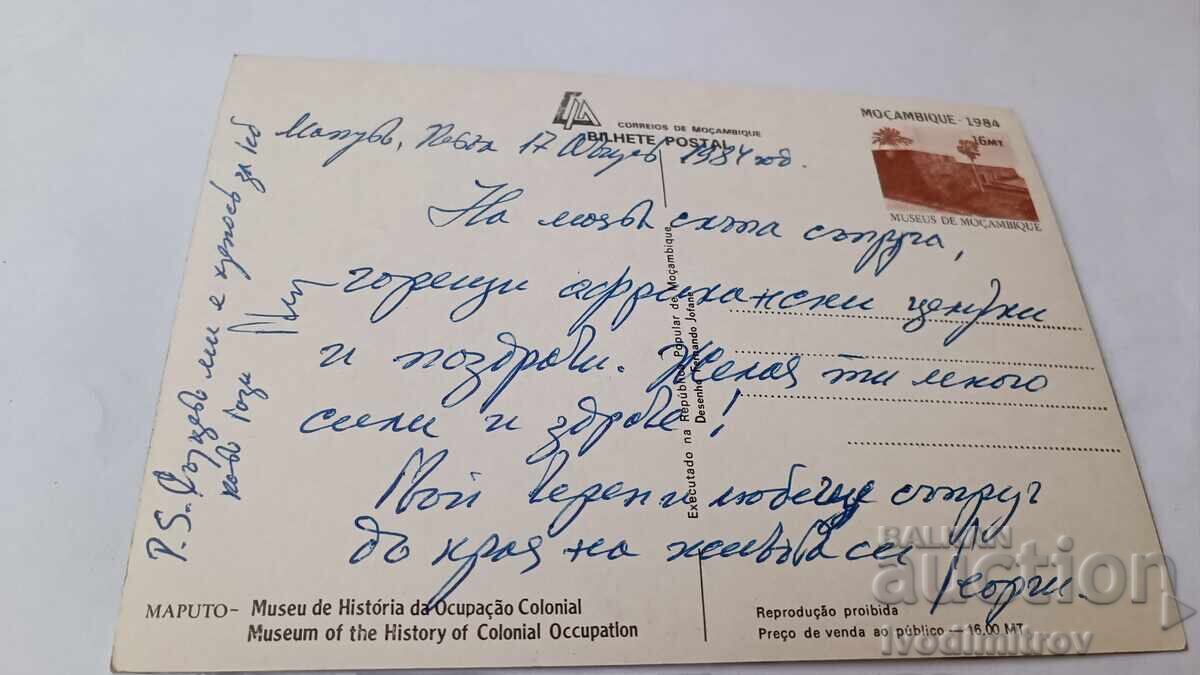 CORREIOS DE MOÇAMBIQUE
BILHETE POSTAL
MOÇAMBIQUE - 1984
16 MT.
MUSEUS DE MOÇAMBIQUE
17 1984 год.
На моята скъпа съпруга,
горещи африкански целувки
и поздрави. Желая ти много
сили и здраве!
Мой верен и любещ съпруг
до края на живота си
Георги.
P.S. Сърцето ми е
за теб
Executado na República Popular de Moçambique
Desenho Fernando Jofane
MAPUTO - Museu de História da Ocupação Colonial
Museum of the History of Colonial Occupation
Reprodução proibida
Preço de venda ao público — 16,00 MT
BALKAN
auction
ivodimitrov